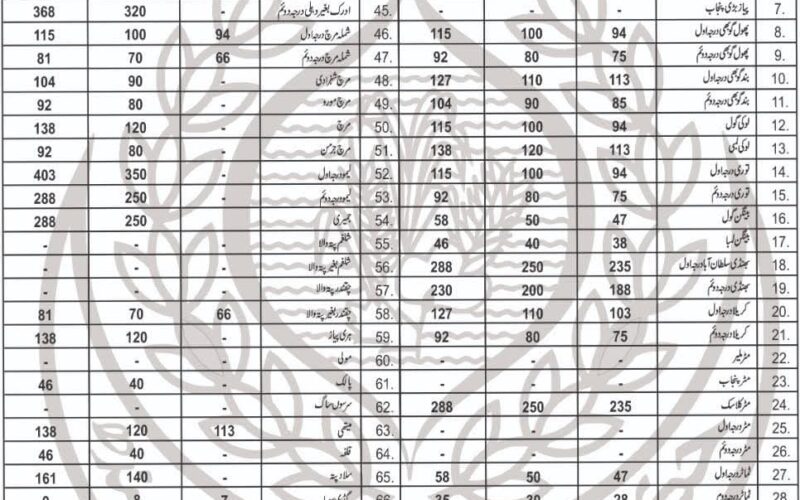 7. پیاز بڑی پنجاب - - - 45. ادرک بغیر دہلی درجہ دوئم - 320 368
8. پھول گوبھی درجہ اول 94 100 115 46. شملہ مرچ درجہ اول 94 100 115
9. پھول گوبھی درجہ دوئم 75 80 92 47. شملہ مرچ درجہ دوئم 66 70 81
10. بند گوبھی درجہ اول 113 110 127 48. مرچ شہزادی - 90 104
11. بند گوبھی درجہ دوئم 85 90 104 49. مرچ مورو - 80 92
12. لوکی گول 94 100 115 50. مرچ - 120 138
13. لوکی لمبی 113 120 138 51. مرچ جرمن - 80 92
14. توری درجہ اول 94 100 115 52. لیمو درجہ اول - 350 403
15. توری درجہ دوئم 75 80 92 53. لیمو درجہ دوئم - 250 288
16. بینگن گول 47 50 58 54. جمیری - 250 288
17. بینگن لمبا 38 40 46 55. شلغم پتہ والا - - -
18. بھنڈی سلطان آباد درجہ اول 235 250 288 56. شلغم بغیر پتہ والا - - -
19. بھنڈی درجہ دوئم 188 200 230 57. چقندر پتہ والا - - -
20. کریلا درجہ اول 103 110 127 58. چقندر بغیر پتہ والا 66 70 81
21. کریلا درجہ دوئم 75 80 92 59. ہری پیاز - 120 138
22. مٹر ملیر - - - 60. مولی - - -
23. مٹر پنجاب - - - 61. پالک - 40 46
24. مٹر کلاسک 235 250 288 62. سرسوں ساگ - - -
25. مٹر درجہ اول - - - 63. میتھی 113 120 138
26. مٹر درجہ دوئم - - - 64. قلفہ - 40 46
27. ٹماٹر درجہ اول 47 50 58 65. سلاد پتہ - 140 161
28. ٹماٹر درجہ دوئم 28 30 35 66. 7 8 9